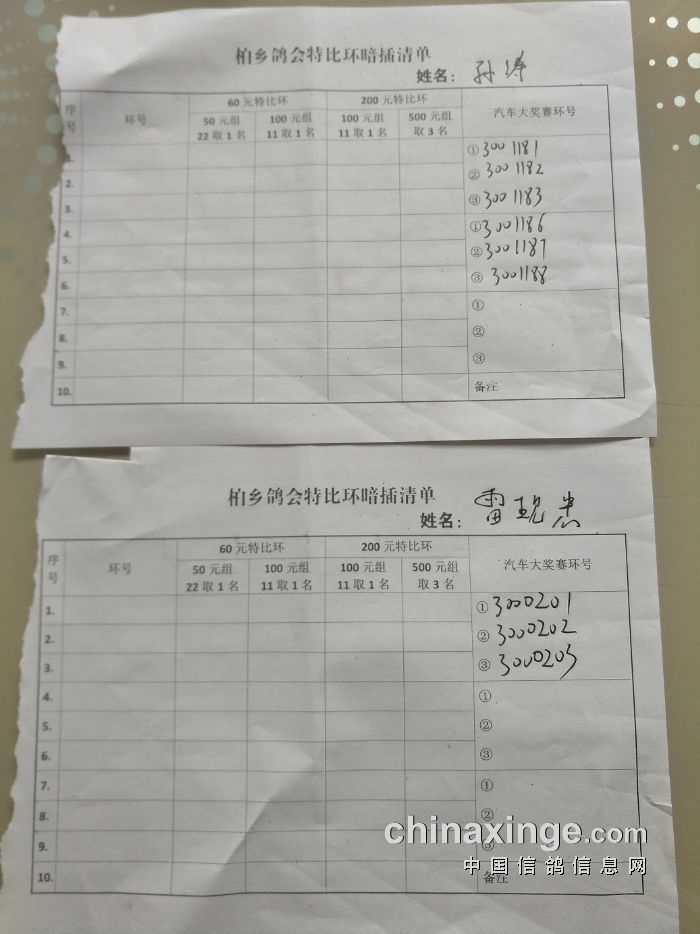 柏乡鸽会特比环暗插清单
姓名：孙涛
序号 环号 60元特比环 200元特比环 汽车大奖赛环号
50元组 100元组 100元组 500元组
22取1名 11取1名 11取1名 取3名
1. ①3001181
2. ②3001182
3. ③3001183
4. ①3001186
5. ②3001187
6. ③3001188
7. ①
8. ②
9. ③
10. 备注
柏乡鸽会特比环暗插清单
姓名：雷现
序号 环号 60元特比环 200元特比环 汽车大奖赛环号
50元组 100元组 100元组 500元组
22取1名 11取1名 11取1名 取3名
1. ①3000201
2. ②3000202
3. ③3000203
4. ①
5. ②
6. ③
7. ①
8. ②
9. ③
10. 备注
chinaxinge.com
中国信鸽信息网